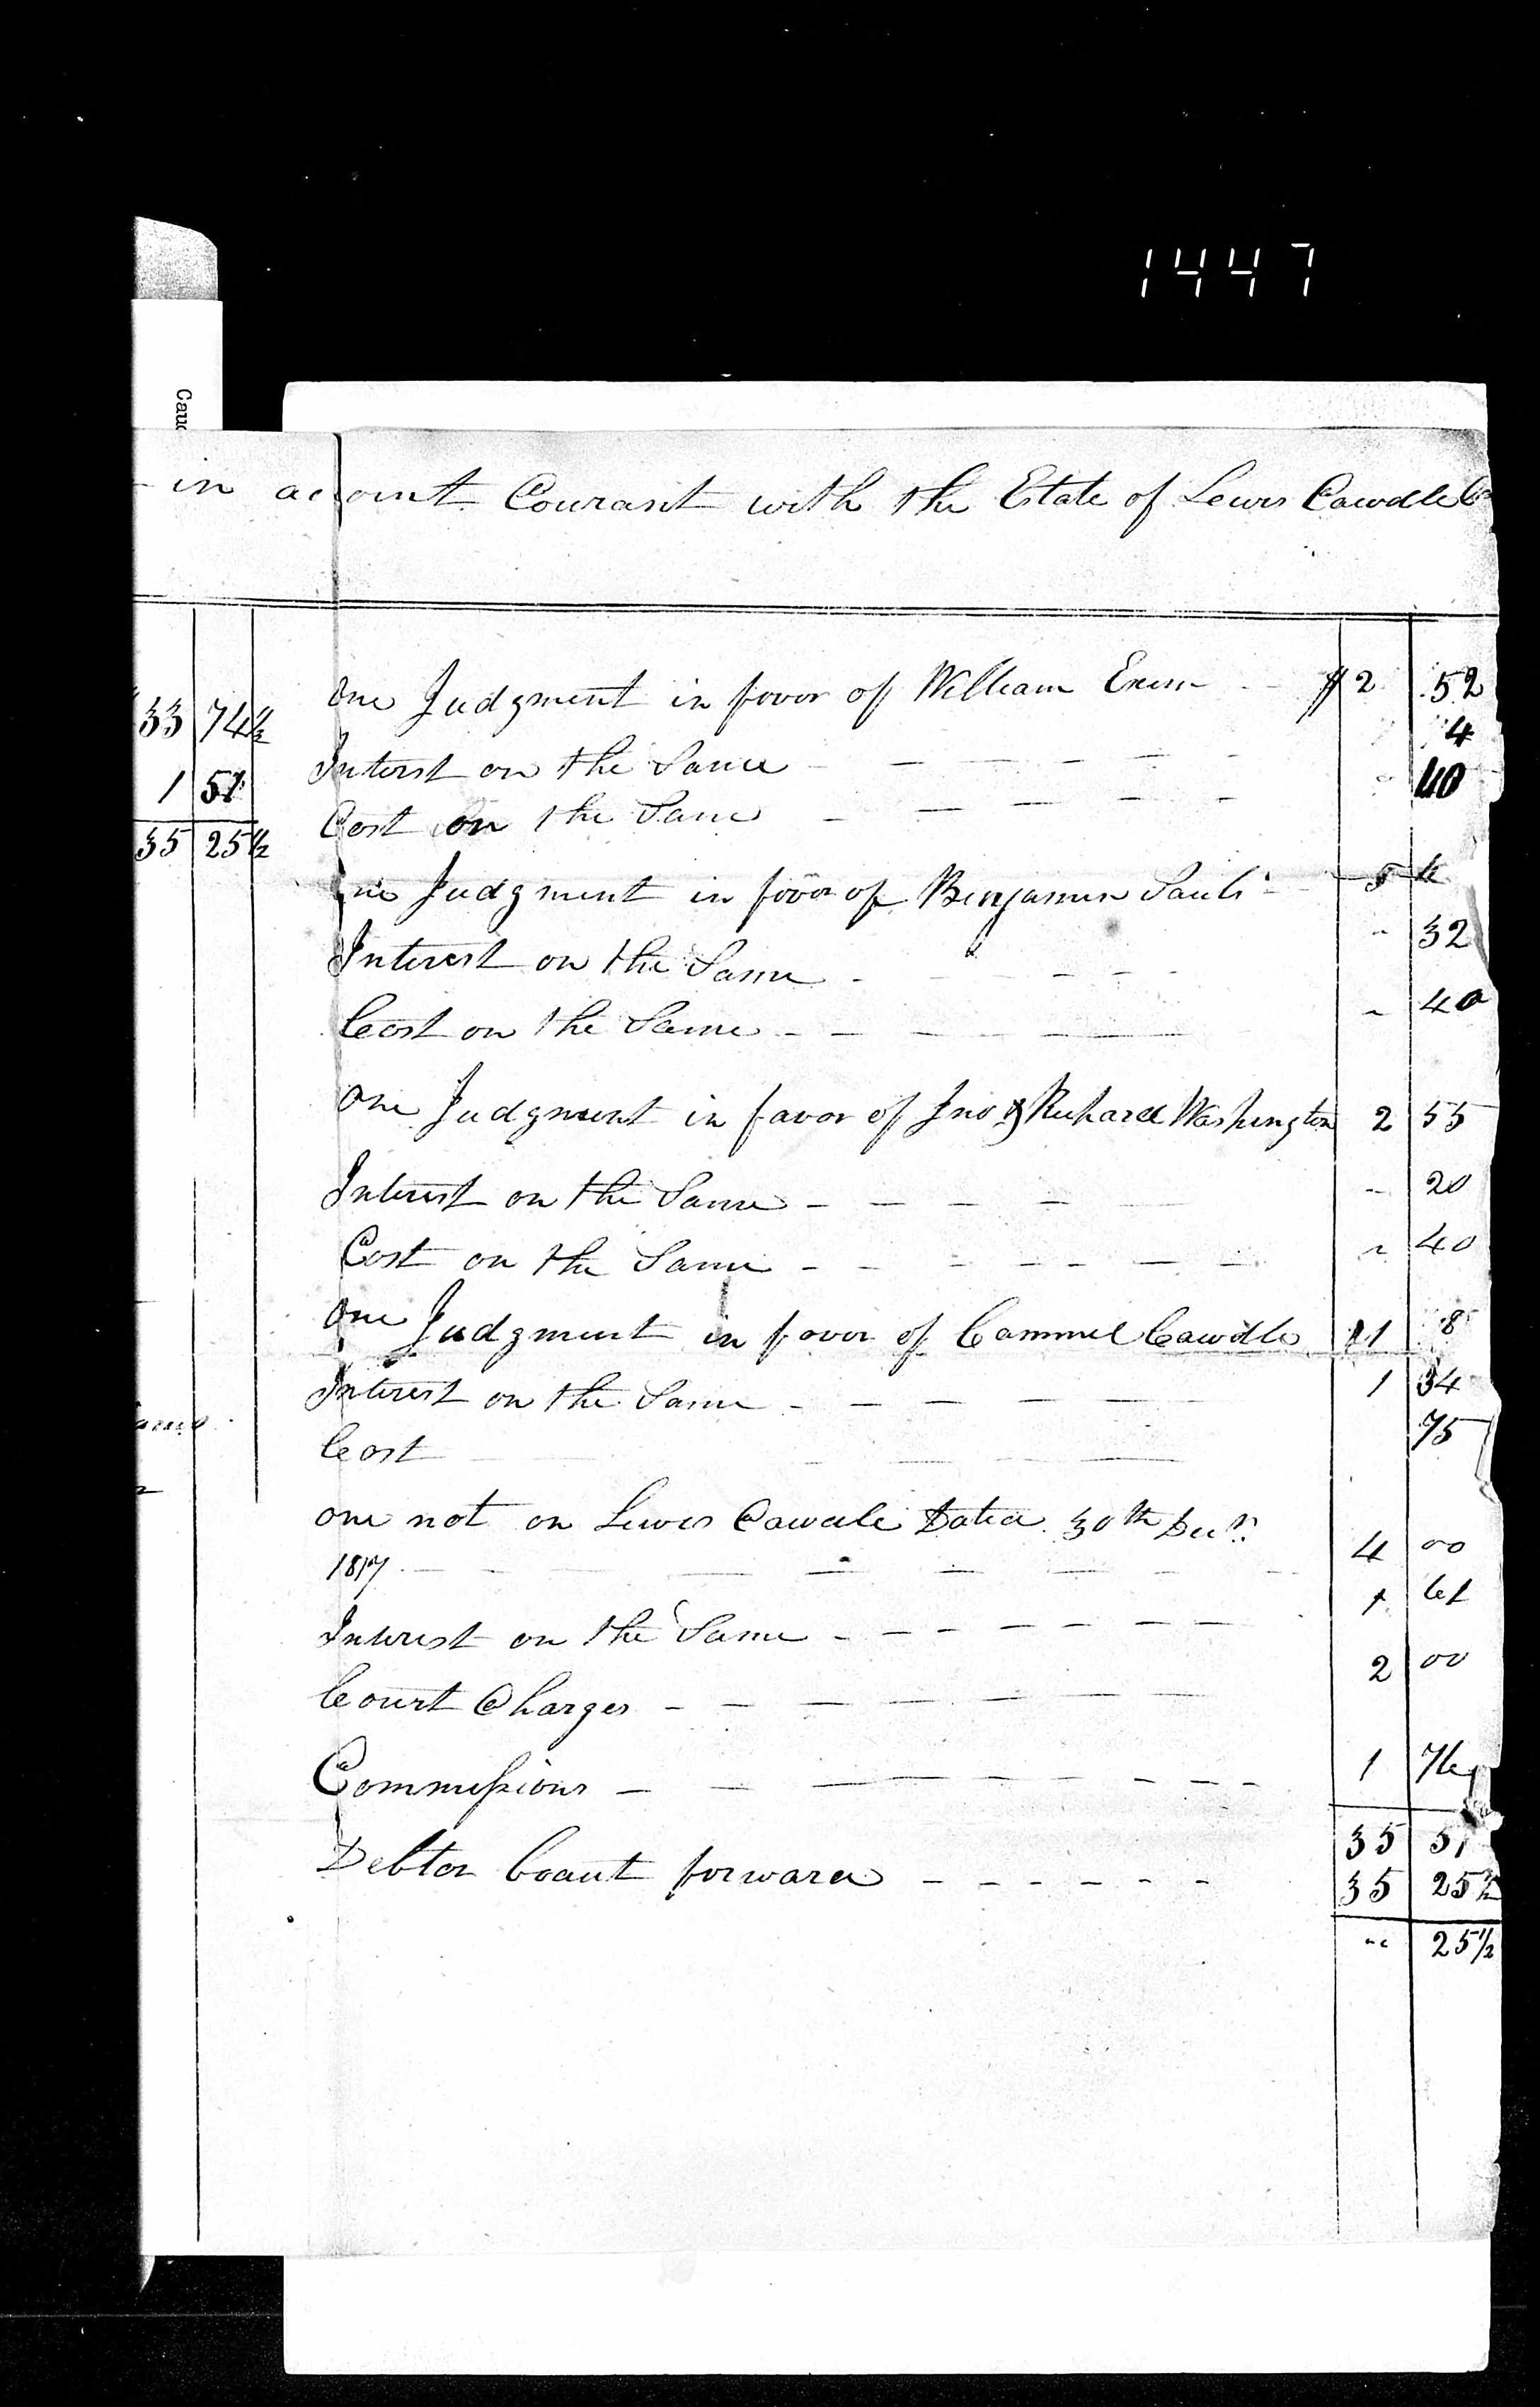 1447
Cauc
in account Courant with the Estate of Lewis Cawdle
33 74½
1 51
35 25½
One Judgment in favor of William Exum $2 52
Interst on the Same 4
Cost on the Same 40
One Judgment in favor of Benjamin
Interest on the Same 32
Cost on the Same 40
One Judgment in favor of Jno & Richard Washington 2 55
Interest on the Same 20
Cost on the Same 40
One Judgment in favor of Cammel Cawdle 11 8
Interest on the Same 1 34
Cost 75
one not on Lewis Cawdle Dated 30th Decr.
1817 4 00
Interest on the Same 1
Court Charges 2 00
Commissions 1 76
35 51
Debtor forward 35 25½
25½